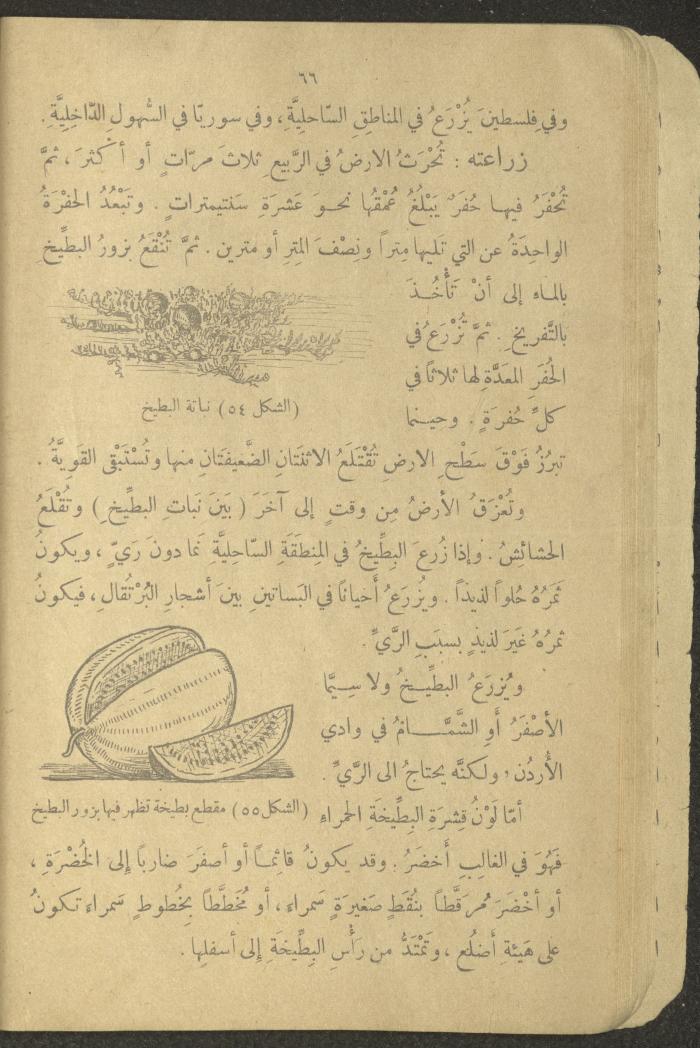 ٦٦
وفي فلسطينَ يُزْرَعُ في المناطقِ السّاحليَّةِ، وفي سوريّا في السُّهولِ الدّاخِليَّةِ.
زراعته : تُحْرَثُ الارضُ في الرَّبيعِ ثلاثَ مرّاتٍ أو أكثرَ، ثمَّ
تُحْفَرُ فيها حُفَرٌ يَبْلُغُ عُمْقُها نحوَ عَشَرَةِ سَنتيمتراتٍ. وتَبْعُدُ الحفْرَةُ
الواحِدَةُ عن التي تَليها مِتراً ونِصْفَ المِترِ أو مترين. ثمَّ تُنْقَعُ بزورُ البطِّيخِ
بالماءِ إلى أنْ تَأْخُذَ
بالتَّفريخِ. ثمَّ تُزْرَعُ في
الحُفَرِ المعَدَّةِ لها ثلاثاً في
كلِّ حُفرَةٍ. وحينما
(الشكل ٥٤) نباتة البطيخ
تبرُزُ فَوْقَ سَطْحِ الارضِ تُقْتَلَعُ الاثنَتانِ الضَّعيفَتانِ منها وتُسْتَبْقى القَوِيَّةُ.
وتُعْزَقُ الأرضُ مِن وقتٍ إلى آخَرَ (بَيْنَ نَباتِ البطِّيخِ) وتُقْلَعُ
الحشائِشُ. وإذا زُرعَ البِطِّيخُ في المِنطَقَةِ السّاحليَّةِ نَما دونَ رَيٍّ، ويكونُ
ثَمَرُهُ حُلواً لذيذاً. ويُزرَعُ أَحياناً في البَساتينِ بينَ أشجارِ البُرْتُقالِ، فيكونُ
ثمرُهُ غَيرَ لذيذٍ بسبَبِ الرَّيِّ.
ويُزرَعُ البطِّيخُ ولا سِيَّما
الأصْفَرُ أَوِ الشَّمَّامُ في وادي
الأُردُن، ولكنَّه يحتاجُ الى الرَّيِّ.
أمّا لَوْنُ قِشرَةِ البِطِّيخَةِ الحمراءِ
(الشكل ٥٥) مقطع بطيخة تظهر فيها بزور البطيخ
فَهُوَ في الغالِبِ أَخضَرُ. وقد يكونُ قاتِماً أو أصفَرَ ضارباً إلى الخُضْرَةِ،
أو أَخْضَرَ مُرَقَّطاً بنُقَطٍ صَغيرَةٍ سَمراء، أو مُخَطَّطاً بخُطوطٍ سَمراءَ تكونُ
على هَيئةِ أَضلُع، وتَمْتَدُّ من رَأْسِ البِطِّيخَةِ إلى أسفلِها.